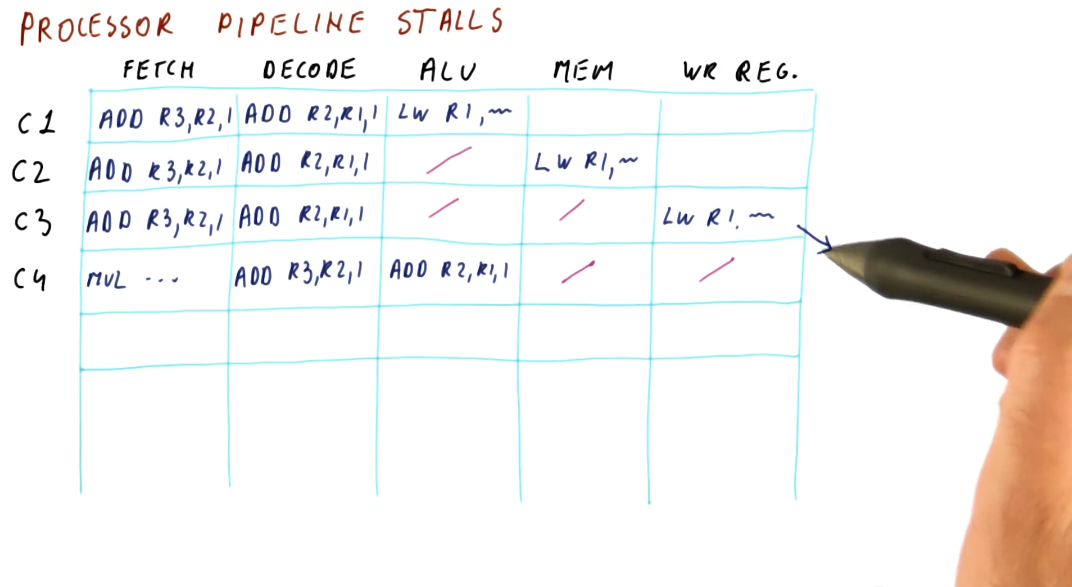 PROCESSOR PIPELINE STALLS
FETCH DECODE ALU MEM WR REG.
C1 ADD R3,R2,1 ADD R2,R1,1 LW R1,~
C2 ADD R3,R2,1 ADD R2,R1,1 LW R1,~
C3 ADD R3,R2,1 ADD R2,R1,1 LW R1,~
C4 MUL ... ADD R3,R2,1 ADD R2,R1,1